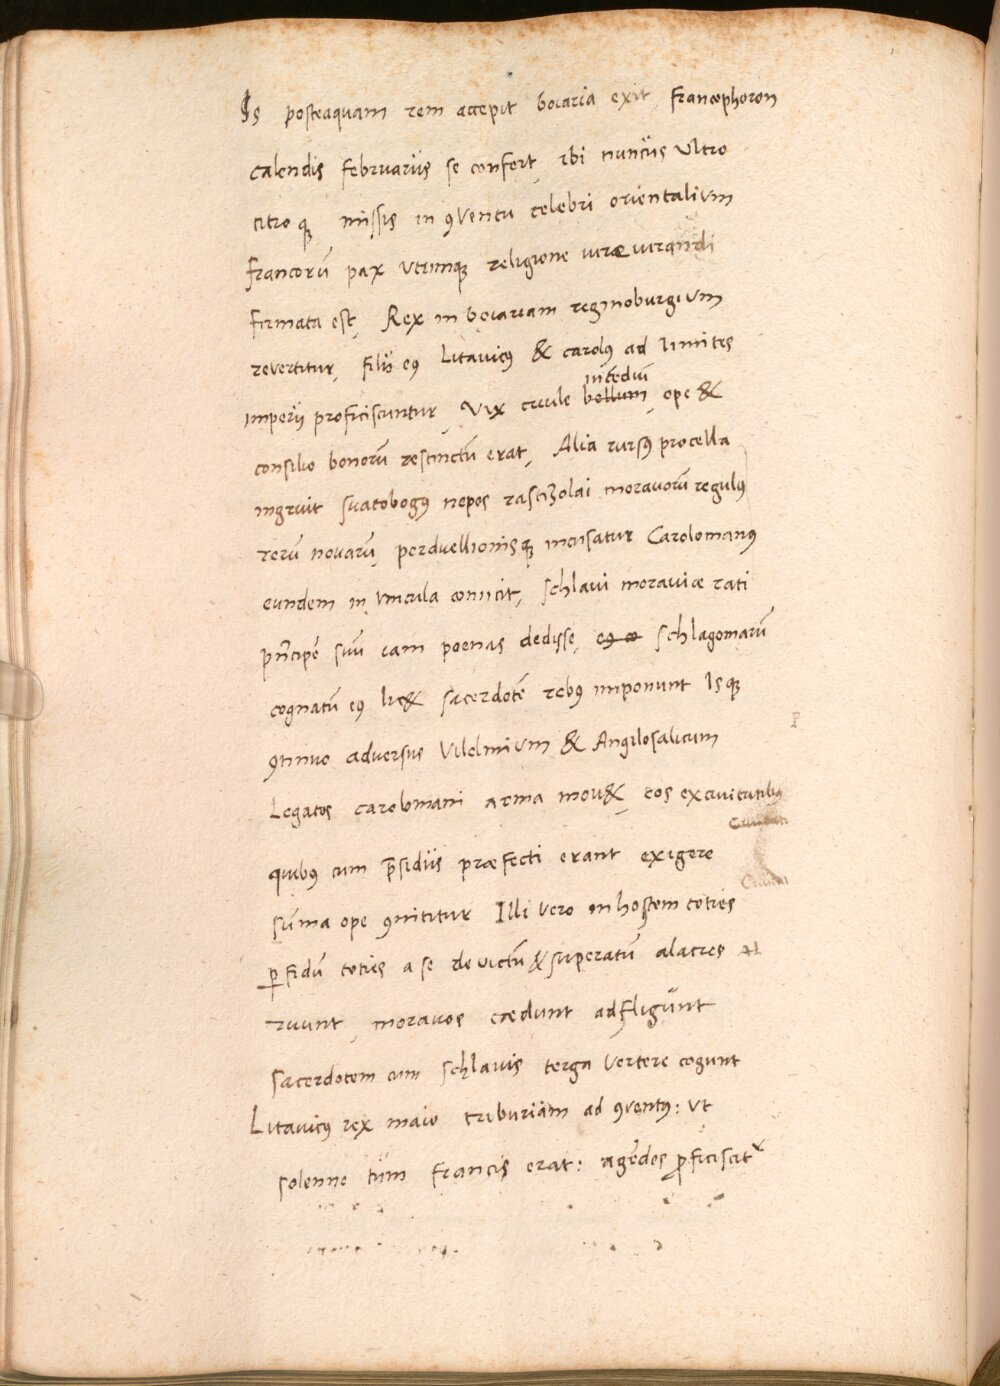 Is posteaquam rem accepit boiaria exit, francophoron
calendis februariis se confert, ibi nunciis ultro
citroqꝫ missis in ꝯventu celebri orientalium
francorū pax utrimqꝫ religione
firmata est, Rex in boiariam reginoburgium
revertitur, filii eꝰ Litavicꝰ & carolꝰ ad limites
incēdiū
imperii proficiscuntur, Vix civile bellum, ope &
consilio bonorū restinctū erat, Alia rursꝰ procella
ingruit suatobogꝰ nepos rascizolai moravorū regulꝰ
rerū novarū, perduellionisqꝫ incusatur Carolomanꝰ
eundem in vincula coniicit, schlavi moraviæ rati
prīcipē suū iam poenas dedisse, eꝰ schlagomarū
cognatū eꝰ lic& sacerdotē rebꝰ imponunt Isqꝫ
ꝯtinuo adversus Vilelmium & Angilosalicum
Legatos carolomani arma mov&, eos ex civitatibꝰ
quibꝰ cum p̄sidiis præfecti erant exigere
sūma ope ꝯnititur Illi vero in hostem toties
ꝑfidū toties a se devictū & superatū alacres
ruunt, moravos cædunt adfligunt
sacerdotem cum schlavis terga vertere cogunt
Litavicꝰ rex maio triburiam ad ꝯventꝰ: ut
solenne tum francis erat: agēdos ꝓficiscit᷑